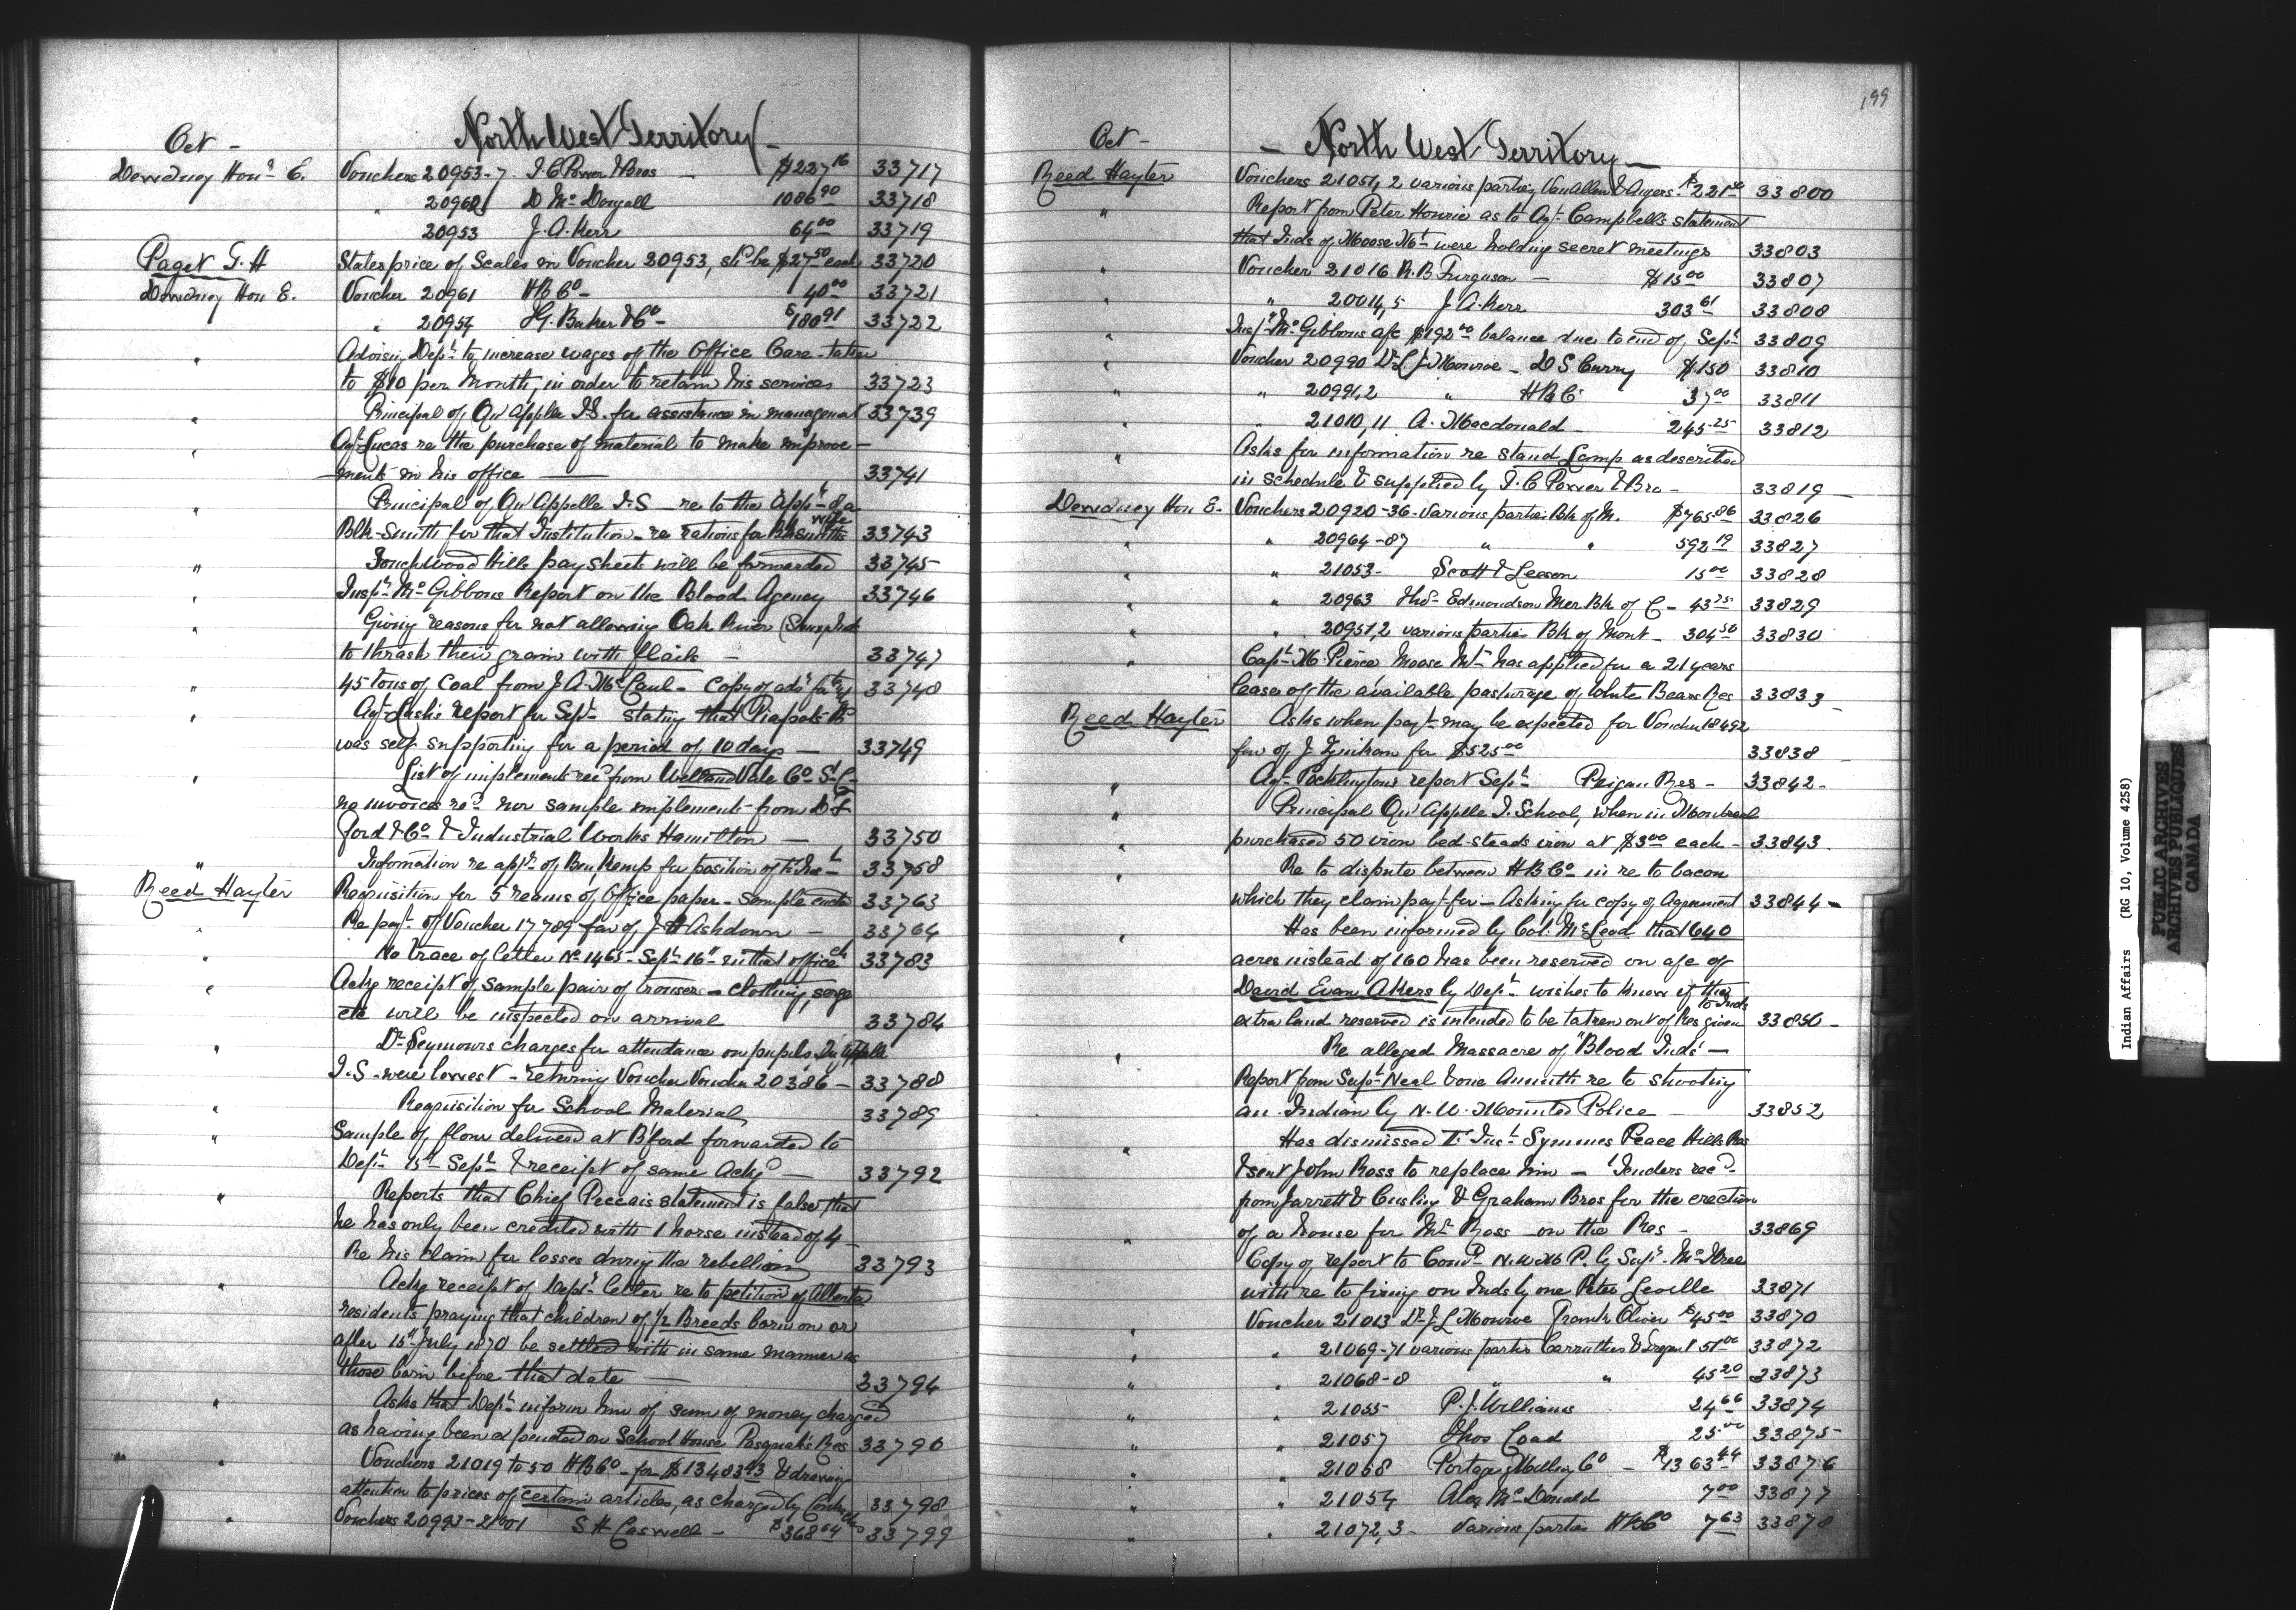 Oct -
North West Territory -
Dewdney Honr E. Vouchers 20953-7. I. C Power & Bros $227 16 33717
" 20960 D McDougall 1086 90 33718
20953 J. A. Kerr 64 00 33719
Paget F. H States price of Scales in Voucher 20953, shd be $27 50 each 33720
Dewdney Hon E. Voucher 20961 HB Co - 40 00 33721
" 20954 I G. Baker & Co - $180 91 33722
" Advising Dept to increase wages of the Office Care-taker
to $10 per Month, in order to retain his services 33723
" Principal of Qu'Appelle I.S. for assistance in management 33739
" Agt Lucas re the purchase of material to make improve-
ments in his office 33741
" Principal of Qu'Appelle I.S - re to the Appt of a
Blk-Smith for that Institution - re rations for Blksmiths wife 33743
" Touchwood Hills pay sheets will be forwarded 33745
" Inspr McGibbons Report on the Blood Agency 33746
" Giving reasons for not allowing Oak River Sioux Inds
to thrash their grain with flails - 33747
" 45 tons of Coal from J A. McCaul - Copy of 33748
" Agt Lash's report for Sept - stating that Piapots Bd
was self supporting for a period of 10 days - 33749
" List of implements recd from Welland Vale Co St. C-
no invoices recd nor sample implements from
ford & Co & Industrial Works Hamilton - 33750
" Information re appt of Ben Kemp for position of Fr Inst 33758
Reed Hayter Requisition for 5 reams of Office paper - Sample encd 33763
" Re payt of Voucher 17789 fav of J H Ashdown - 33764
" No trace of letter No 1465 - Sept 16th in that office 33783
" Ackg receipt of Sample pair of trousers - clothing, serge
etc will be inspected on arrival 33784
" Dr Seymours charges for attendance on pupils Qu'Appelle
I.S - were lowest - returning Voucher Voucher 20386 - 33788
" Requisition for School Material 33789
" Sample of flour delivered at B'ford forwarded to
Dept 15th Sept & receipt of same Ackgd - 33792
" Reports that Chief statement is false, that
he has only been credited with 1 horse instead of 4 -
Re his claim for losses during the rebellion 33793
" Ackg receipt of Dept letter re to petition of Alberta
residents praying that children of 1/2 Breeds born on or
after 15th July 1870 be settled with in same manner as
those born before that date - 33794
" Asks that Dept inform him of sum of money charged
as having been expended on School House Pasquah's Res 33796
" Vouchers 21019 to 50 HB Co - for $13483 43 & drawing
attention to prices of certain articles, as charged by Contractors 33798
" Vouchers 20993-21001 S H Caswell - $368 64 33799
199
Oct -
- North West Territory -
Reed Hayter Vouchers 21051, 2 various parties VanAllen & $221 33800
" Report from Peter Hourie as to Agt Campbell's statement
that Inds of Moose Mt were holding secret meetings 33803
" Voucher 21016 R. B Ferguson - $15 00 33807
" " 20014, 5 J. A. Kerr 303 61 33808
" Inspr McGibbons a/c $192 00 balance due to end of Sept 33809
" Voucher 20990 Dr L J Monroe - D S Curry $150 33810
" " 20991, 2 " H B C 37 00 33811
" " 21010, 11 A. Macdonald - 245 25 33812
" Asks for information re stand Lamp as described
in schedule & supplied by I. C Power & Bro - 33819
Dewdney Hon E. Vouchers 20920-36 - various parties Bk of M. $765 86 33826
" " 20964-87 " " 592 19 33827
" " 21053 - Scott & Leeson 15 00 33828
" " 20963 Thos Edmondson Mer. Bk of C - 43 75 33829
" " 20951, 2 various parties Bk of Mont - 304 50 33830
" Capt M. Pierce Moose Mtn has applied for a 21 years
lease of the available pasturage of White Bears Res 33833
Reed Hayter Asks when payt may be expected for Voucher 18492
fav of J. for $525 00 33838
" Agt Pocklingtons report Sept Peigan Res - 33842 -
" Principal Qu'Appelle I. School, when in Montreal
" purchased 50 iron bed-steads iron at $3 00 each - 33843
" Re to dispute between H B Co in re to bacon
which they claim payt for - Asking for copy of Agreement 33844 -
" Has been informed by Col: McLeod that 640
acres instead of 160 has been reserved on a/c of
David Evan Akers by Dept - wishes to know if the
extra land reserved is intended to be taken out of Res given to Inds 33850 -
" Re alleged Massacre of "Blood Inds" -
Report from Supt Neal & one re to shooting
an Indian by N. W. Mounted Police - 33852
" Has dismissed Fr Inst Symmes Peace Hills Res
& sent John Ross to replace him - Tenders recd
from Jarrett & Cusling & Graham Bros for the erection
" of a house for Mr Ross on the Res - 33869
Copy of report to Comr N. W M P. by Supt
with re to firing on Inds by one Peter Leville 33871
" Voucher 21013 Dr J. L Monroe Frank Oliver $45 00 33870
" " 21069-71 various parties Carruthers & 151 00 33872
" " 21068-8 " " 45 20 33873
" " 21055 P. J. Williams 24 66 33874
" " 21057 Thos Coad 25 00 33875
" " 21058 Portage Milling Co - $1363 44 33876
" " 21054 Alex McDonald 7 00 33877
" " 21072, 3 - Various parties HB Co 7 63 33878
Indian Affairs (RG 10, Volume 4258)
PUBLIC ARCHIVES
ARCHIVES PUBLIQUES
CANADA